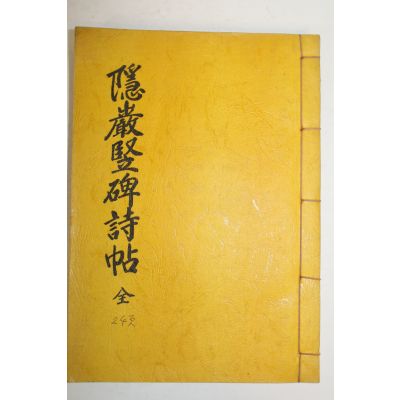 隱巖竪碑詩帖
全
243